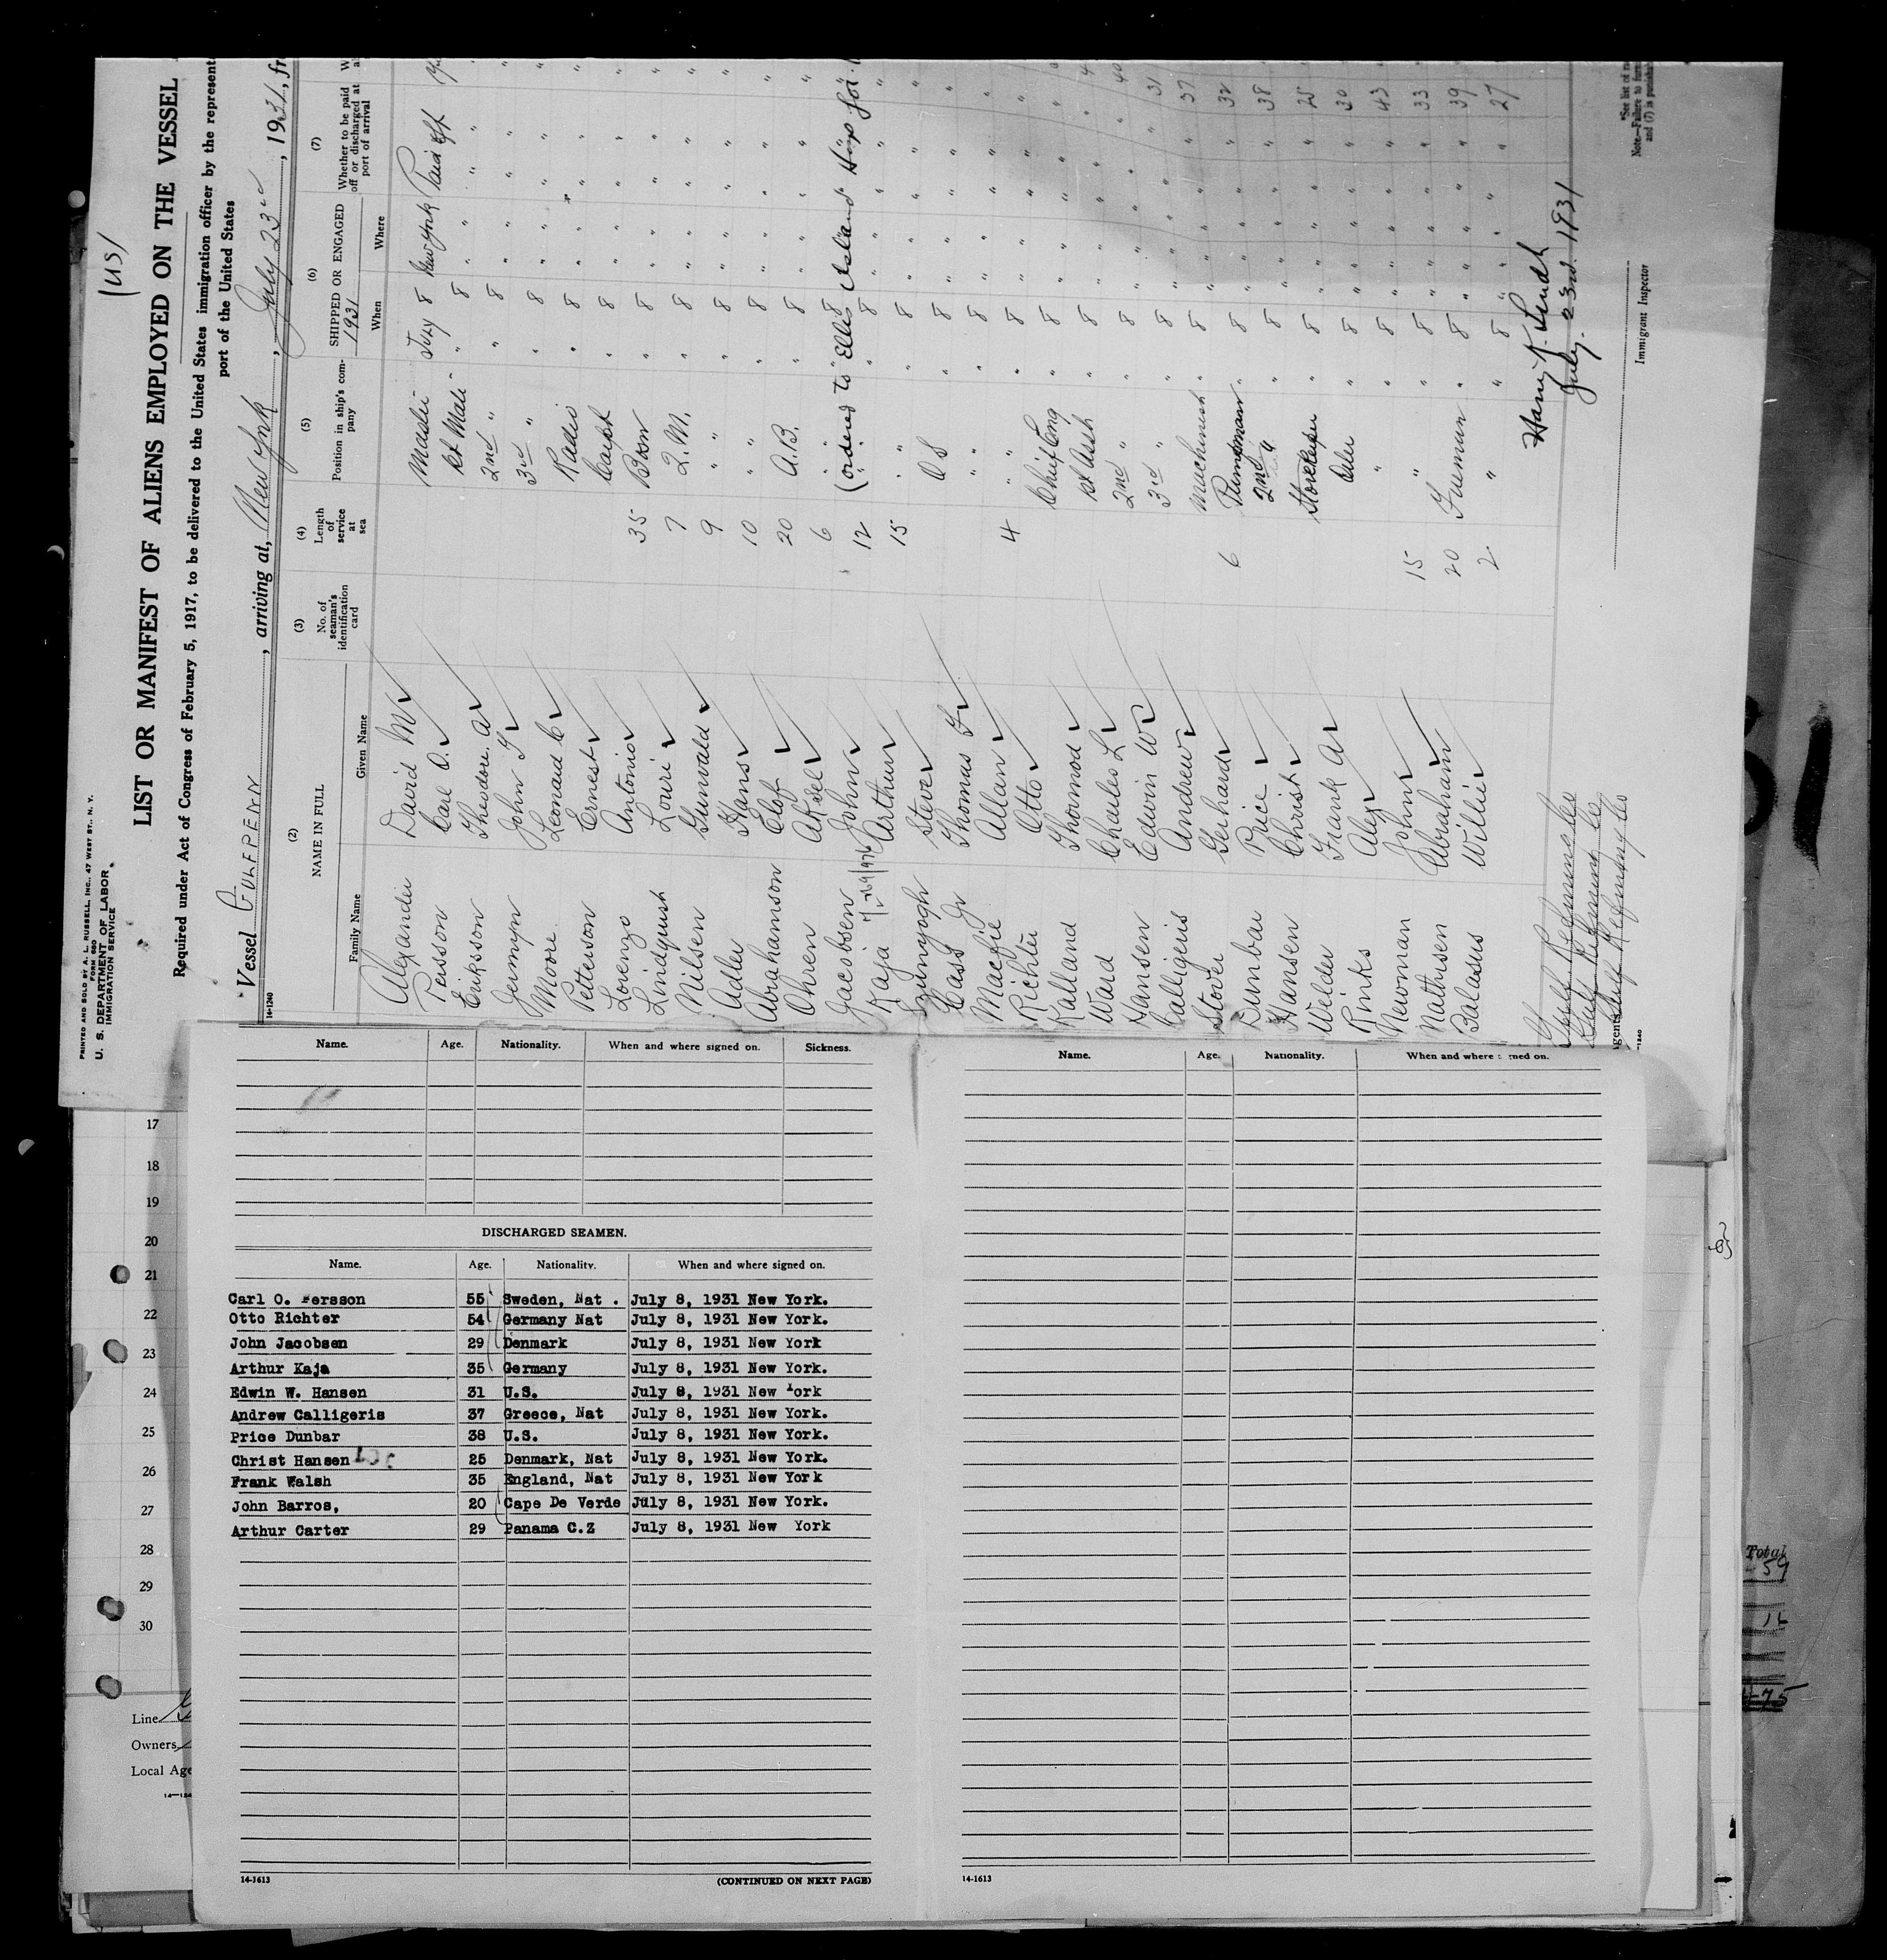 PRINTED AND SOLD BY A. L. RUSSELL, INC., 47 WEST ST., N. Y.
FORM 680
U. S. DEPARTMENT OF LABOR
IMMIGRATION SERVICE
(US)
LIST OR MANIFEST OF ALIENS EMPLOYED ON THE VESSEL
Required under Act of Congress of February 5, 1917, to be delivered to the United States immigration officer by the represent
port of the United States
Vessel GULFPENN, arriving at, New York, July 23rd, 1931, fr
14-1240
(2) (3) (4) (5) (6) (7)
NAME IN FULL No. of seaman's identification card Length of service at sea Position in ship's company SHIPPED OR ENGAGED 1931 Whether to be paid off or discharged at port of arrival
Family Name Given Name When Where
Alexander David M Master July 8 New York Paid off
Persson Carl O. 1st Mate " 8 " "
Erikson Theodore A 2nd " " 8 " "
Jermyn John T 3rd " " 8 " "
Moore Leonard C Radio " 8 " "
Petterson Ernest Carpt " 8 " "
Lorenzo Antonio 35 Bosn " 8 " "
Lindquist Louri 7 Q.M. " 8 " "
Nilsen Gunvald 9 " " 8 " "
Adler Hans 10 " " 8 " "
Abrahamson Elof 20 A.B. " 8 " "
Ohren Aksel 6 " 8
(ordered to Ellis Island Hosp for
Jacobsen John 12 " " 8 " "
Kaja Arthur 15 " " 8 " "
Steve OS " 8 " "
Cass Jr Thomas F " " 8 " "
Macfie Allan 4 " " 8 " "
Richter Otto Chief Eng " 8 " "
Kalland Thormod 1st Asst " 8 " "
Ward Charles L 2nd " " 8 " " 40
Hansen Edwin W 3rd " " 8 " " 31
Calligeris Andrew Machinist " 8 " " 37
Stover Gerhard 6 Pumpman " 8 " " 32
Dunbar Price 2nd " " 8 " " 38
Hansen Christ Storekeeper " 8 " " 25
Welder Frank A Oiler " 8 " " 30
Rinks Alex " " 8 " " 43
Newman John 15 " " 8 " " 33
Mathisen Abraham 20 Fireman " 8 " " 39
Balasus Willie 2 " " 8 " " 27
Gulf Refining Co
Gulf Refining Co
Gulf Refining Co
July 23rd. 1931
Immigrant Inspector
*See list of
Note—Failure to
and (7) is punishabl
17
18
19
20
21
22
23
24
25
26
27
28
29
30
Line
Owners
Local Age
Name. Age. Nationality. When and where signed on. Sickness.
DISCHARGED SEAMEN.
Name. Age. Nationality. When and where signed on.
Carl O. Persson 55 Sweden, Nat . July 8, 1931 New York.
Otto Richter 54 Germany Nat July 8, 1931 New York.
John Jacobsen 29 Denmark July 8, 1931 New York
Arthur Kaja 35 Germany July 8, 1931 New York.
Edwin W. Hansen 31 U.S. July 8, 1931 New York
Andrew Calligeris 37 Greece, Nat July 8, 1931 New York.
Price Dunbar 38 U.S. July 8, 1931 New York.
Christ Hansen 25 Denmark, Nat July 8, 1931 New York.
Frank Walsh 35 England, Nat July 8, 1931 New York
John Barros, 20 Cape De Verde July 8, 1931 New York.
Arthur Carter 29 Panama C.Z July 8, 1931 New York
14-1613 (CONTINUED ON NEXT PAGE)
Name. Age. Nationality. When and where signed on.
14-1613
Total